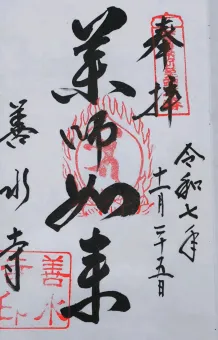 奉拝
令和七年
十一月二十五日
薬師如来
善水寺